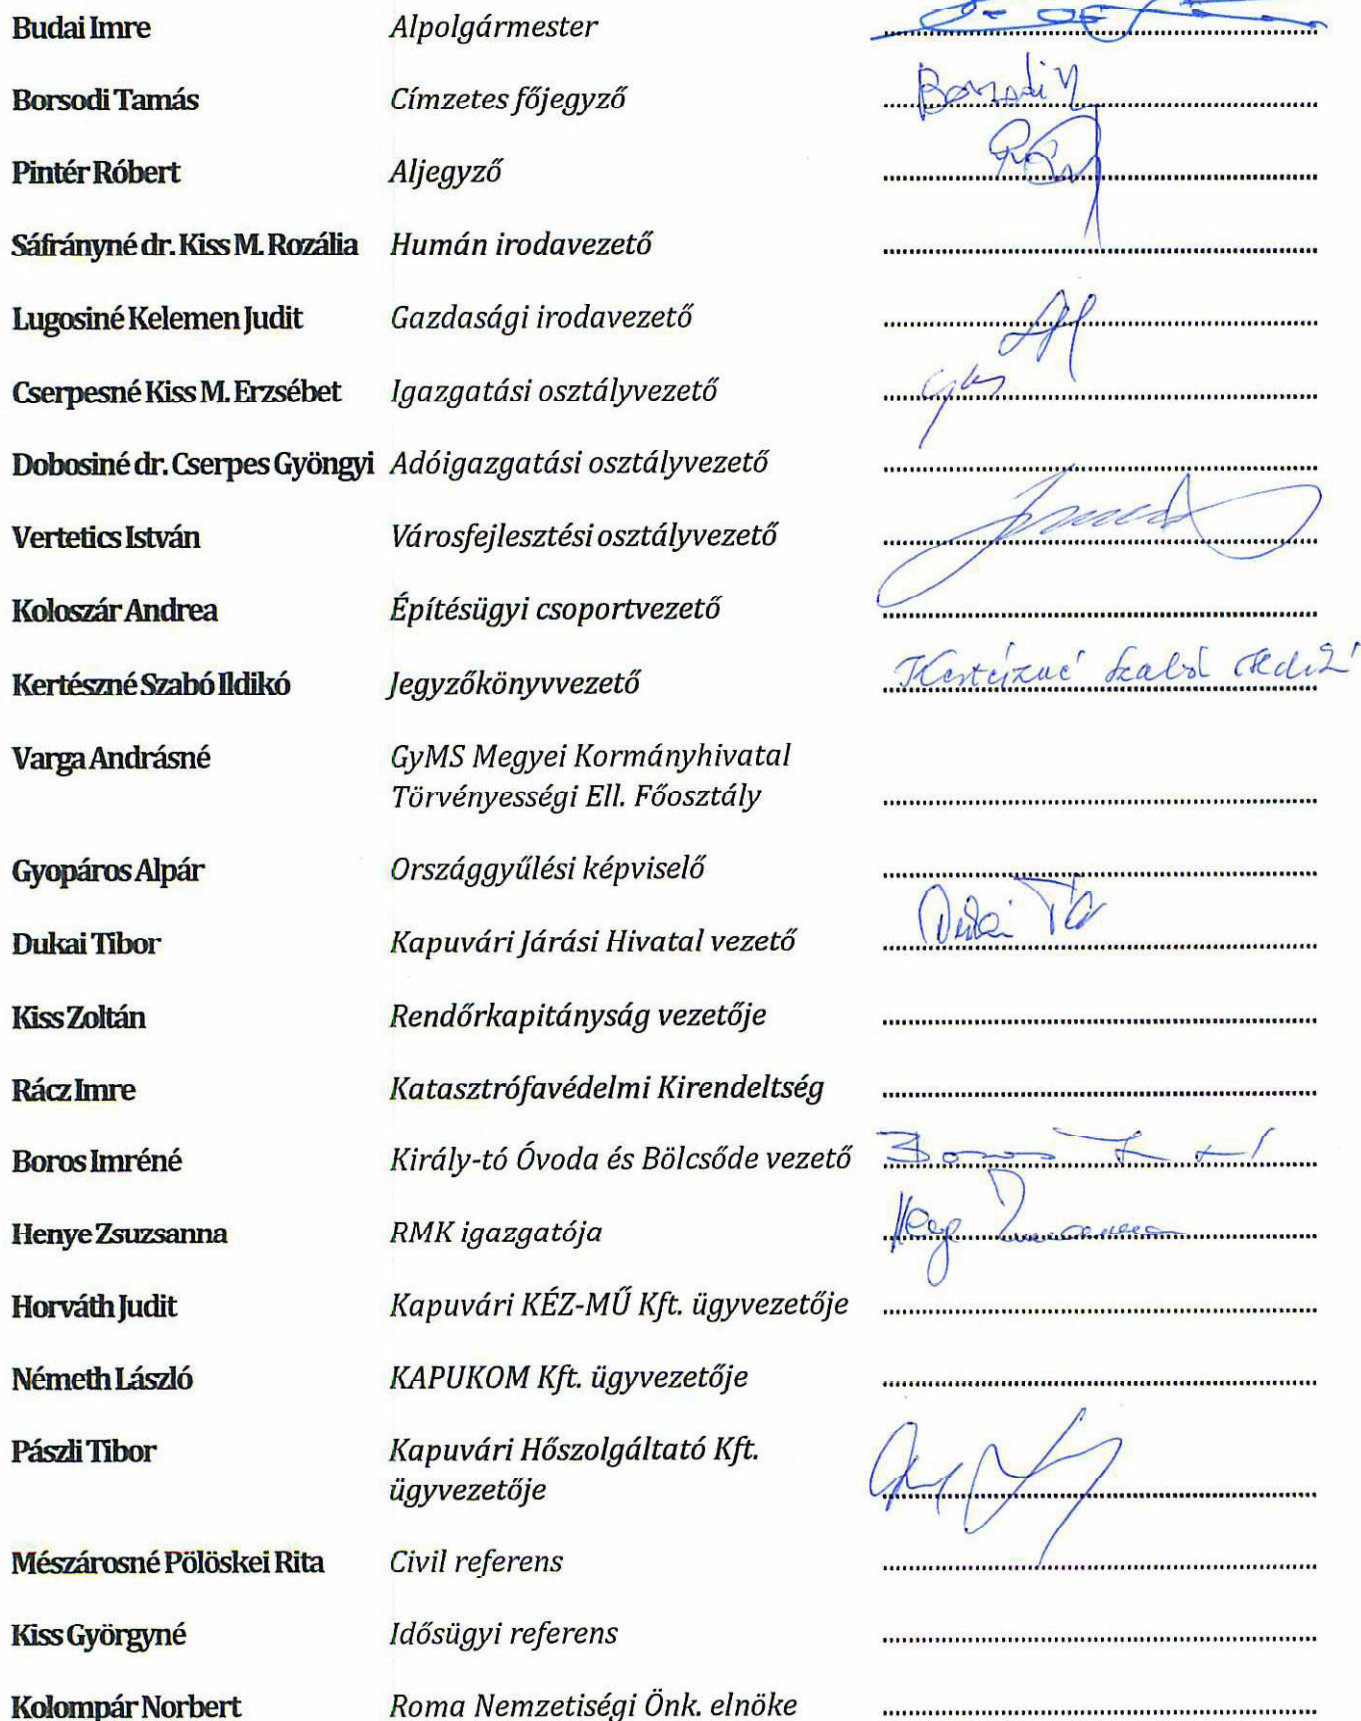 Budai Imre Alpolgármester
Borsodi Tamás Címzetes főjegyző Borsodi
Pintér Róbert Aljegyző
Sáfrányné dr. Kiss M. Rozália Humán irodavezető
Lugosiné Kelemen Judit Gazdasági irodavezető
Cserpesné Kiss M. Erzsébet Igazgatási osztályvezető
Dobosiné dr. Cserpes Gyöngyi Adóigazgatási osztályvezető
Vertetics István Városfejlesztési osztályvezető
Koloszár Andrea Építésügyi csoportvezető
Kertészné Szabó Ildikó Jegyzőkönyvvezető Kertészné Szabó Ildikó
Varga Andrásné GyMS Megyei Kormányhivatal
Törvényességi Ell. Főosztály
Gyopáros Alpár Országgyűlési képviselő
Dukai Tibor Kapuvári Járási Hivatal vezető Dukai
Kiss Zoltán Rendőrkapitányság vezetője
Rácz Imre Katasztrófavédelmi Kirendeltség
Boros Imréné Király-tó Óvoda és Bölcsőde vezető Boros
Henye Zsuzsanna RMK igazgatója
Horváth Judit Kapuvári KÉZ-MŰ Kft. ügyvezetője
Németh László KAPUKOM Kft. ügyvezetője
Pászli Tibor Kapuvári Hőszolgáltató Kft.
ügyvezetője
Mészárosné Pölöskei Rita Civil referens
Kiss Györgyné Idősügyi referens
Kolompár Norbert Roma Nemzetiségi Önk. elnöke